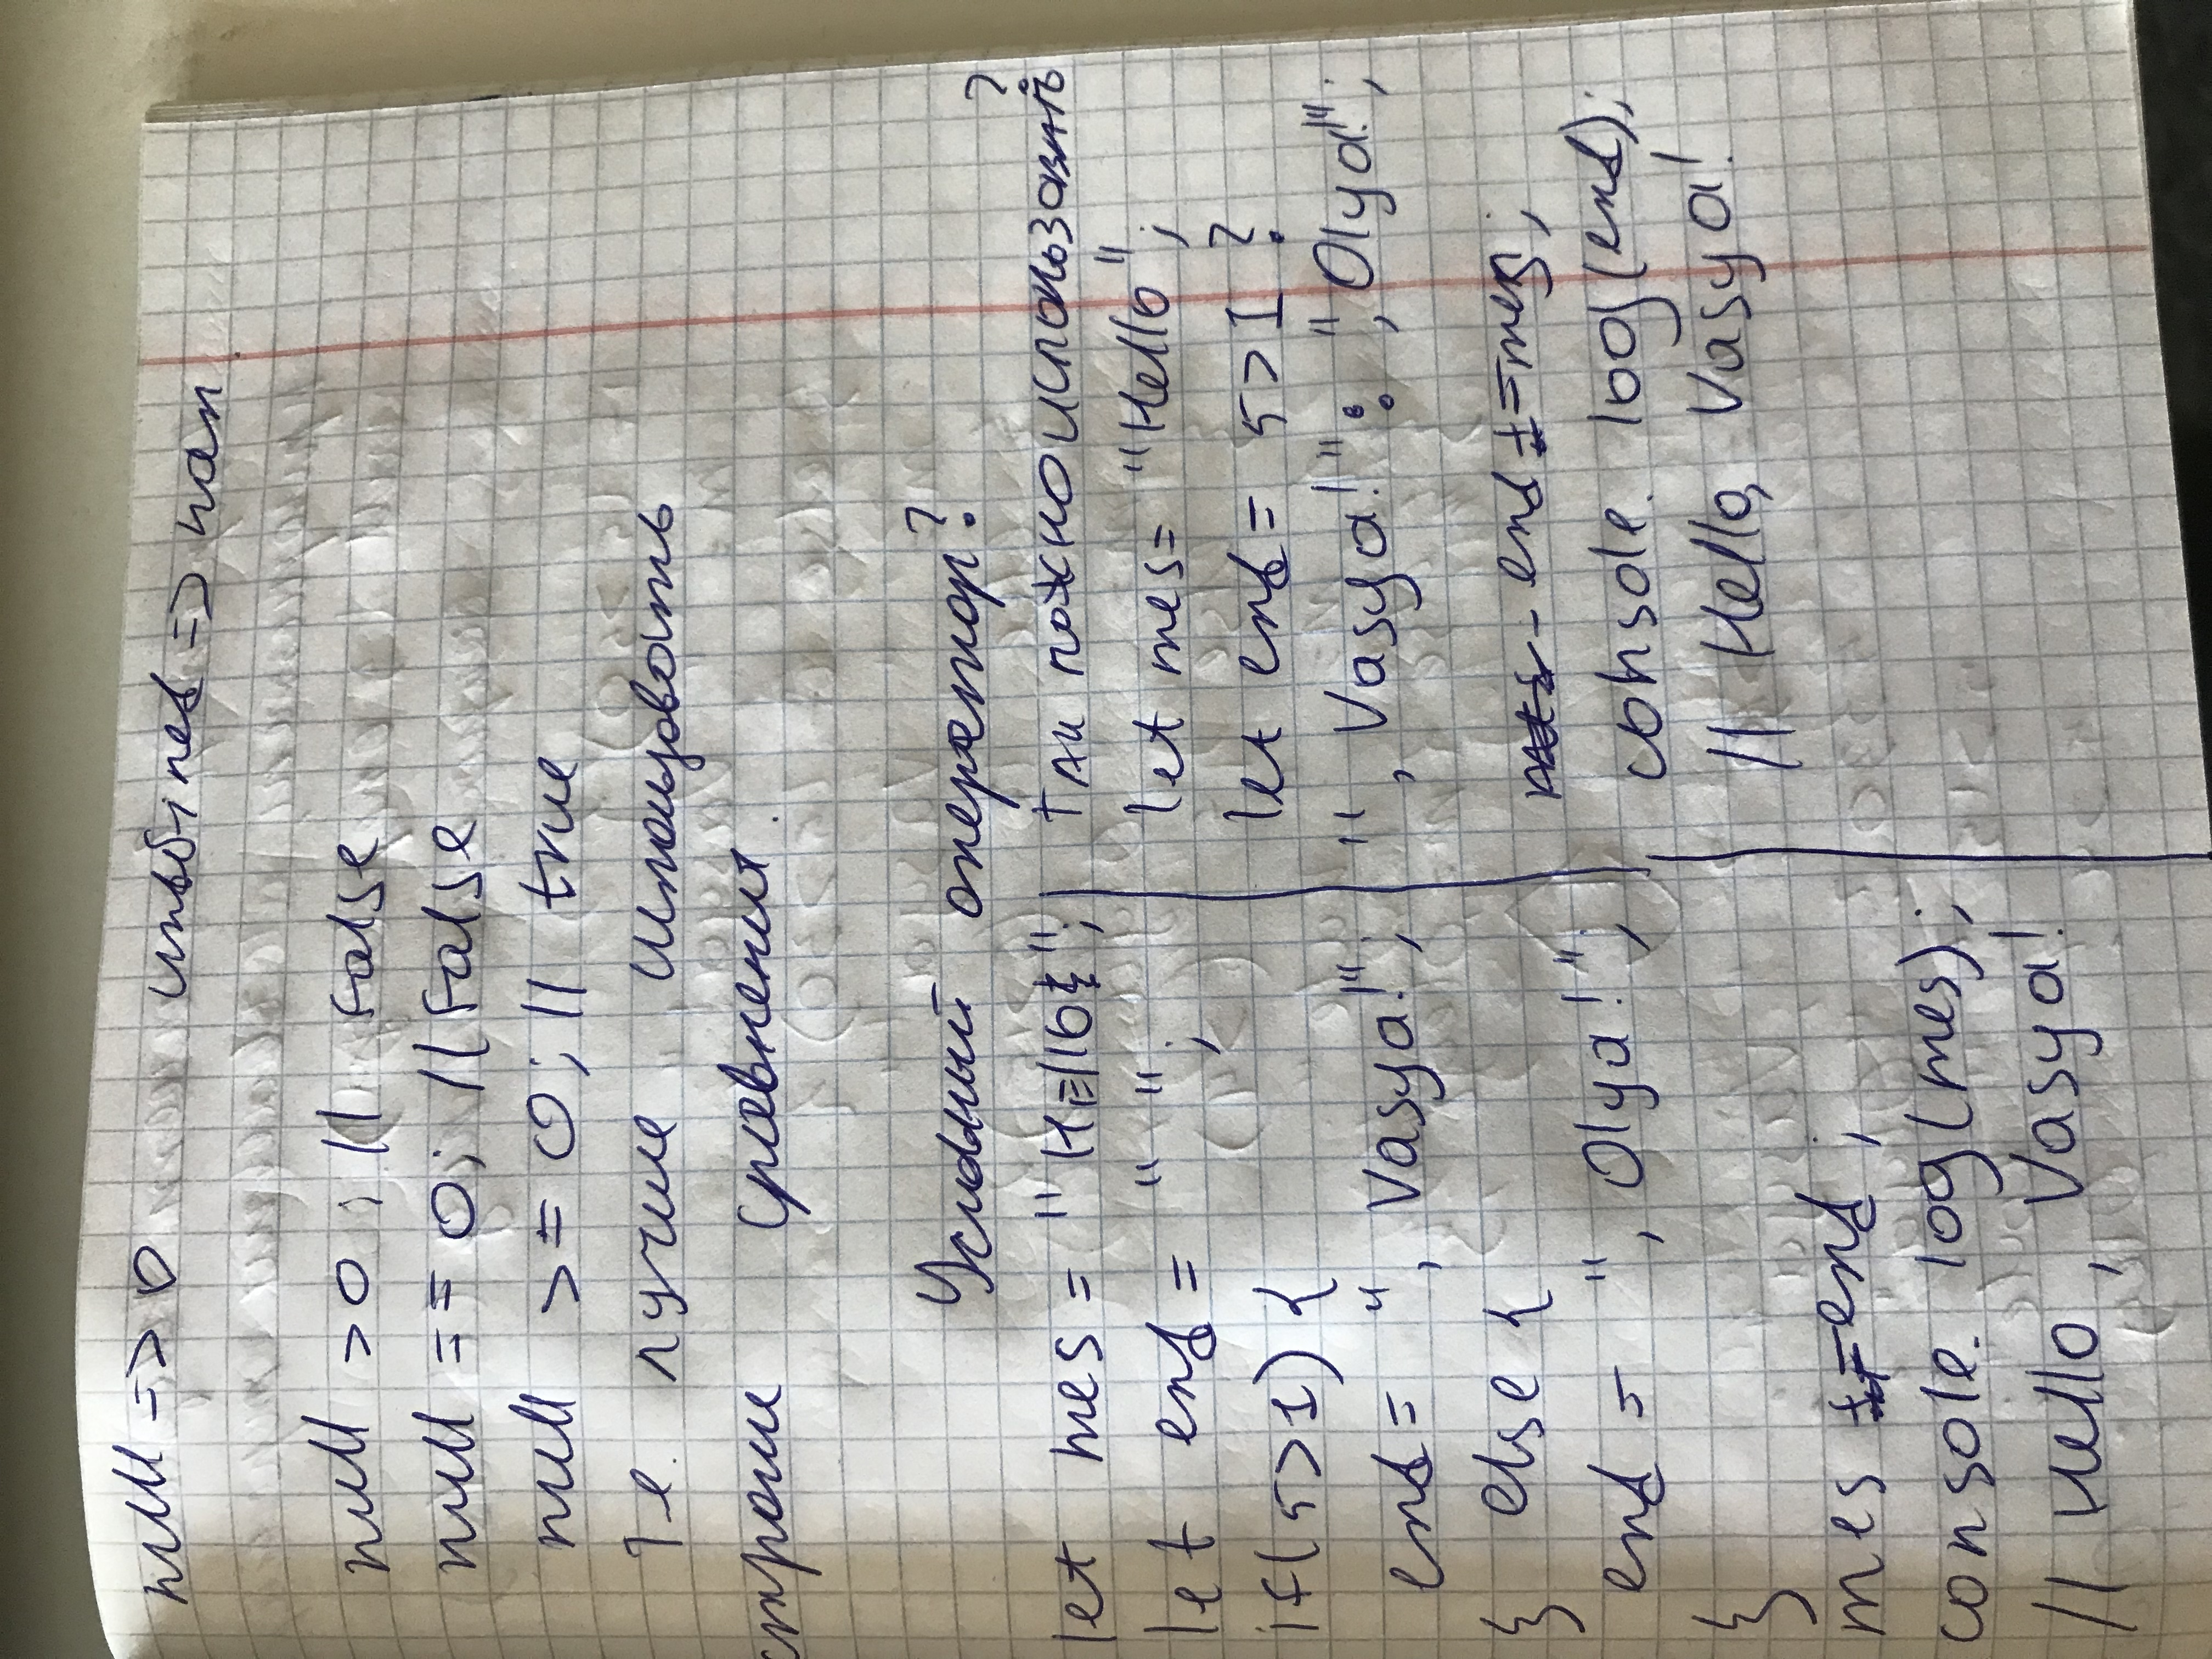 null => 0 undefined => nan
null > 0 ; // false
null == 0; // false
null >= 0; // true
Т.е. лучше использовать
строгие сравнения.
Условный оператор?
let mes = "Hello";
let end = " ";
if(5>1) {
end = ", Vasya!";
} else {
end = ", Olya!";
}
mes += end ;
console. log(mes);
// Hello, Vasya!
Так можно использовать ?
let mes = "Hello";
let end = 5>1 ?
", Vasya!" : ", Olya!";
end += mes;
console. log(end);
// Hello, Vasya!